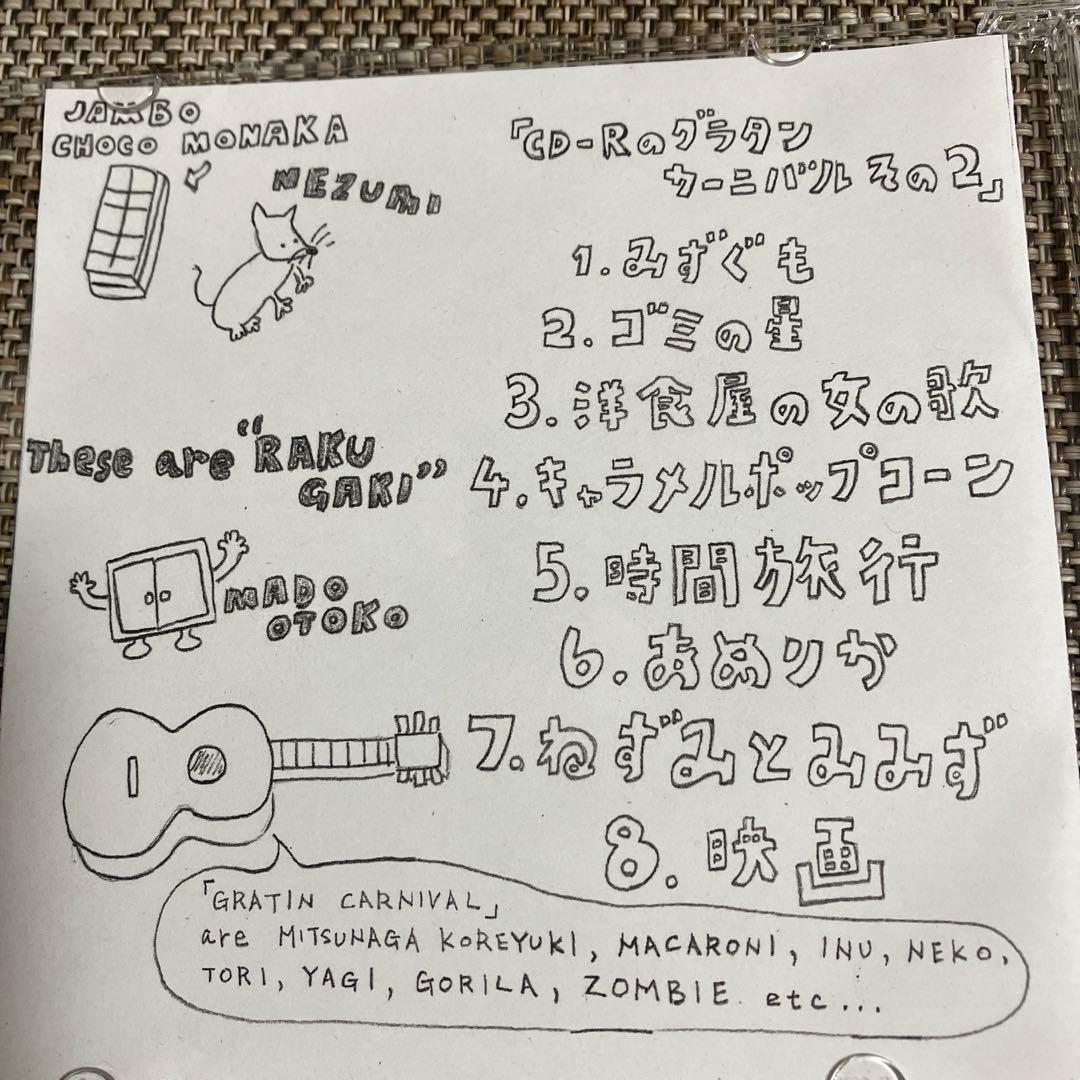 JAMBO
CHOCO MONAKA
NEZUMI
These are "RAKU
GAKI"
MADO
OTOKO
「CD-Rのグラタン
カーニバル その2」
1.みずぐも
2.ゴミの星
3.洋食屋の女の歌
4.キャラメルポップコーン
5.時間旅行
6.あめりか
7.ねずみとみみず
8.映画
「GRATIN CARNIVAL」
are MITSUNAGA KOREYUKI, MACARONI, INU, NEKO,
TORI, YAGI, GORILA, ZOMBIE. etc...